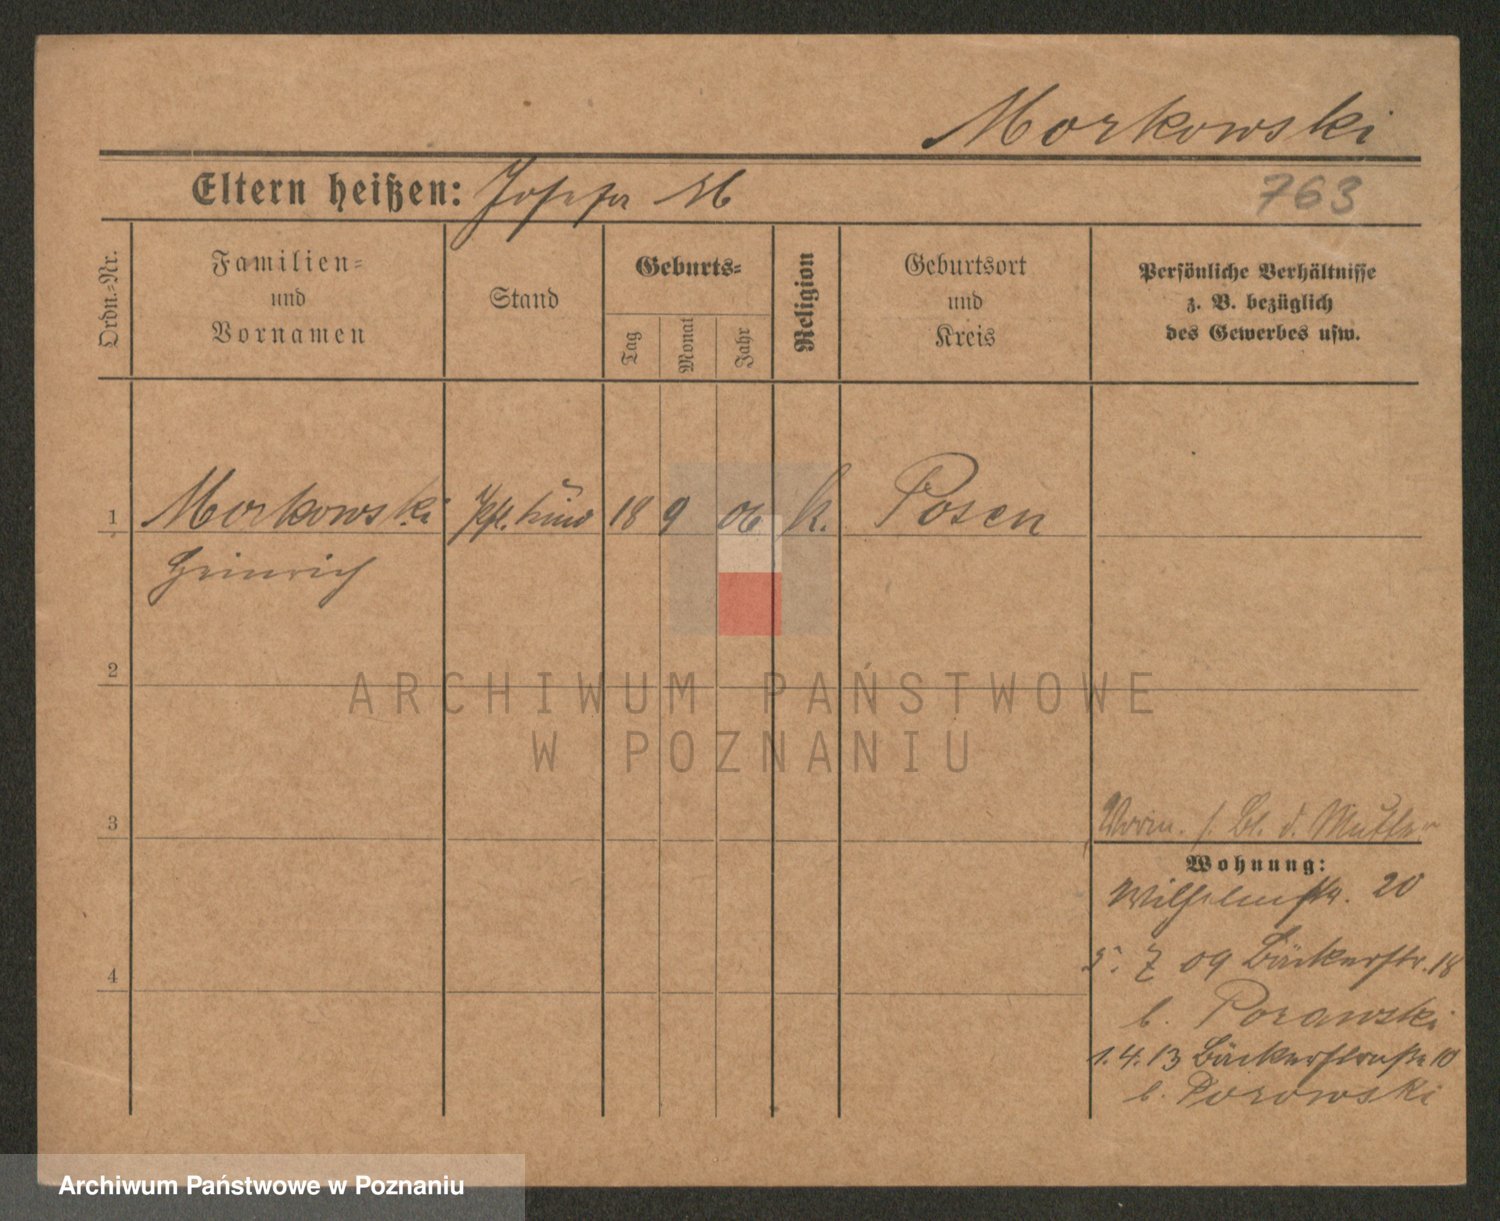 Morkowski
Eltern heißen: Josefa M
763
Ordn.-Nr.
Familien-
und
Vornamen
Stand
Geburts-
Tag
Monat
Jahr
Religion
Geburtsort
und
Kreis
Persönliche Verhältnisse
z. B. bezüglich
des Gewerbes usw.
1 Morkowski 18 9 06 k. Posen
Heinrich
2
ARCHIWUM PAŃSTWOWE
W POZNANIU
3
Vorm. s. Bl. d. Mutter
Wohnung:
Wilhelmstr. 20
5. 7 09 Bäckerstr. 18
4
b. Porawski
1.4.13 Bäckerstraße 10
b. Porowski
Archiwum Państwowe w Poznaniu